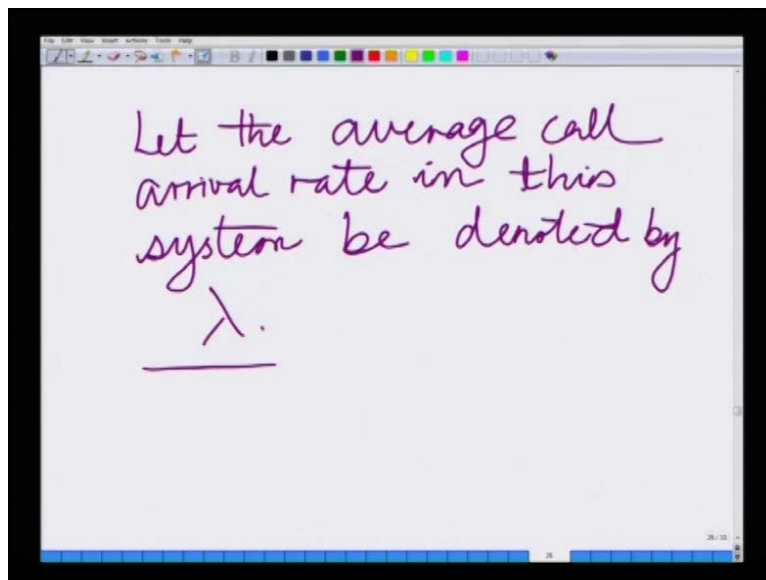 File Edit View Insert Actions Tools Help
Let the average call
arrival rate in this
system be denoted by
λ.
26